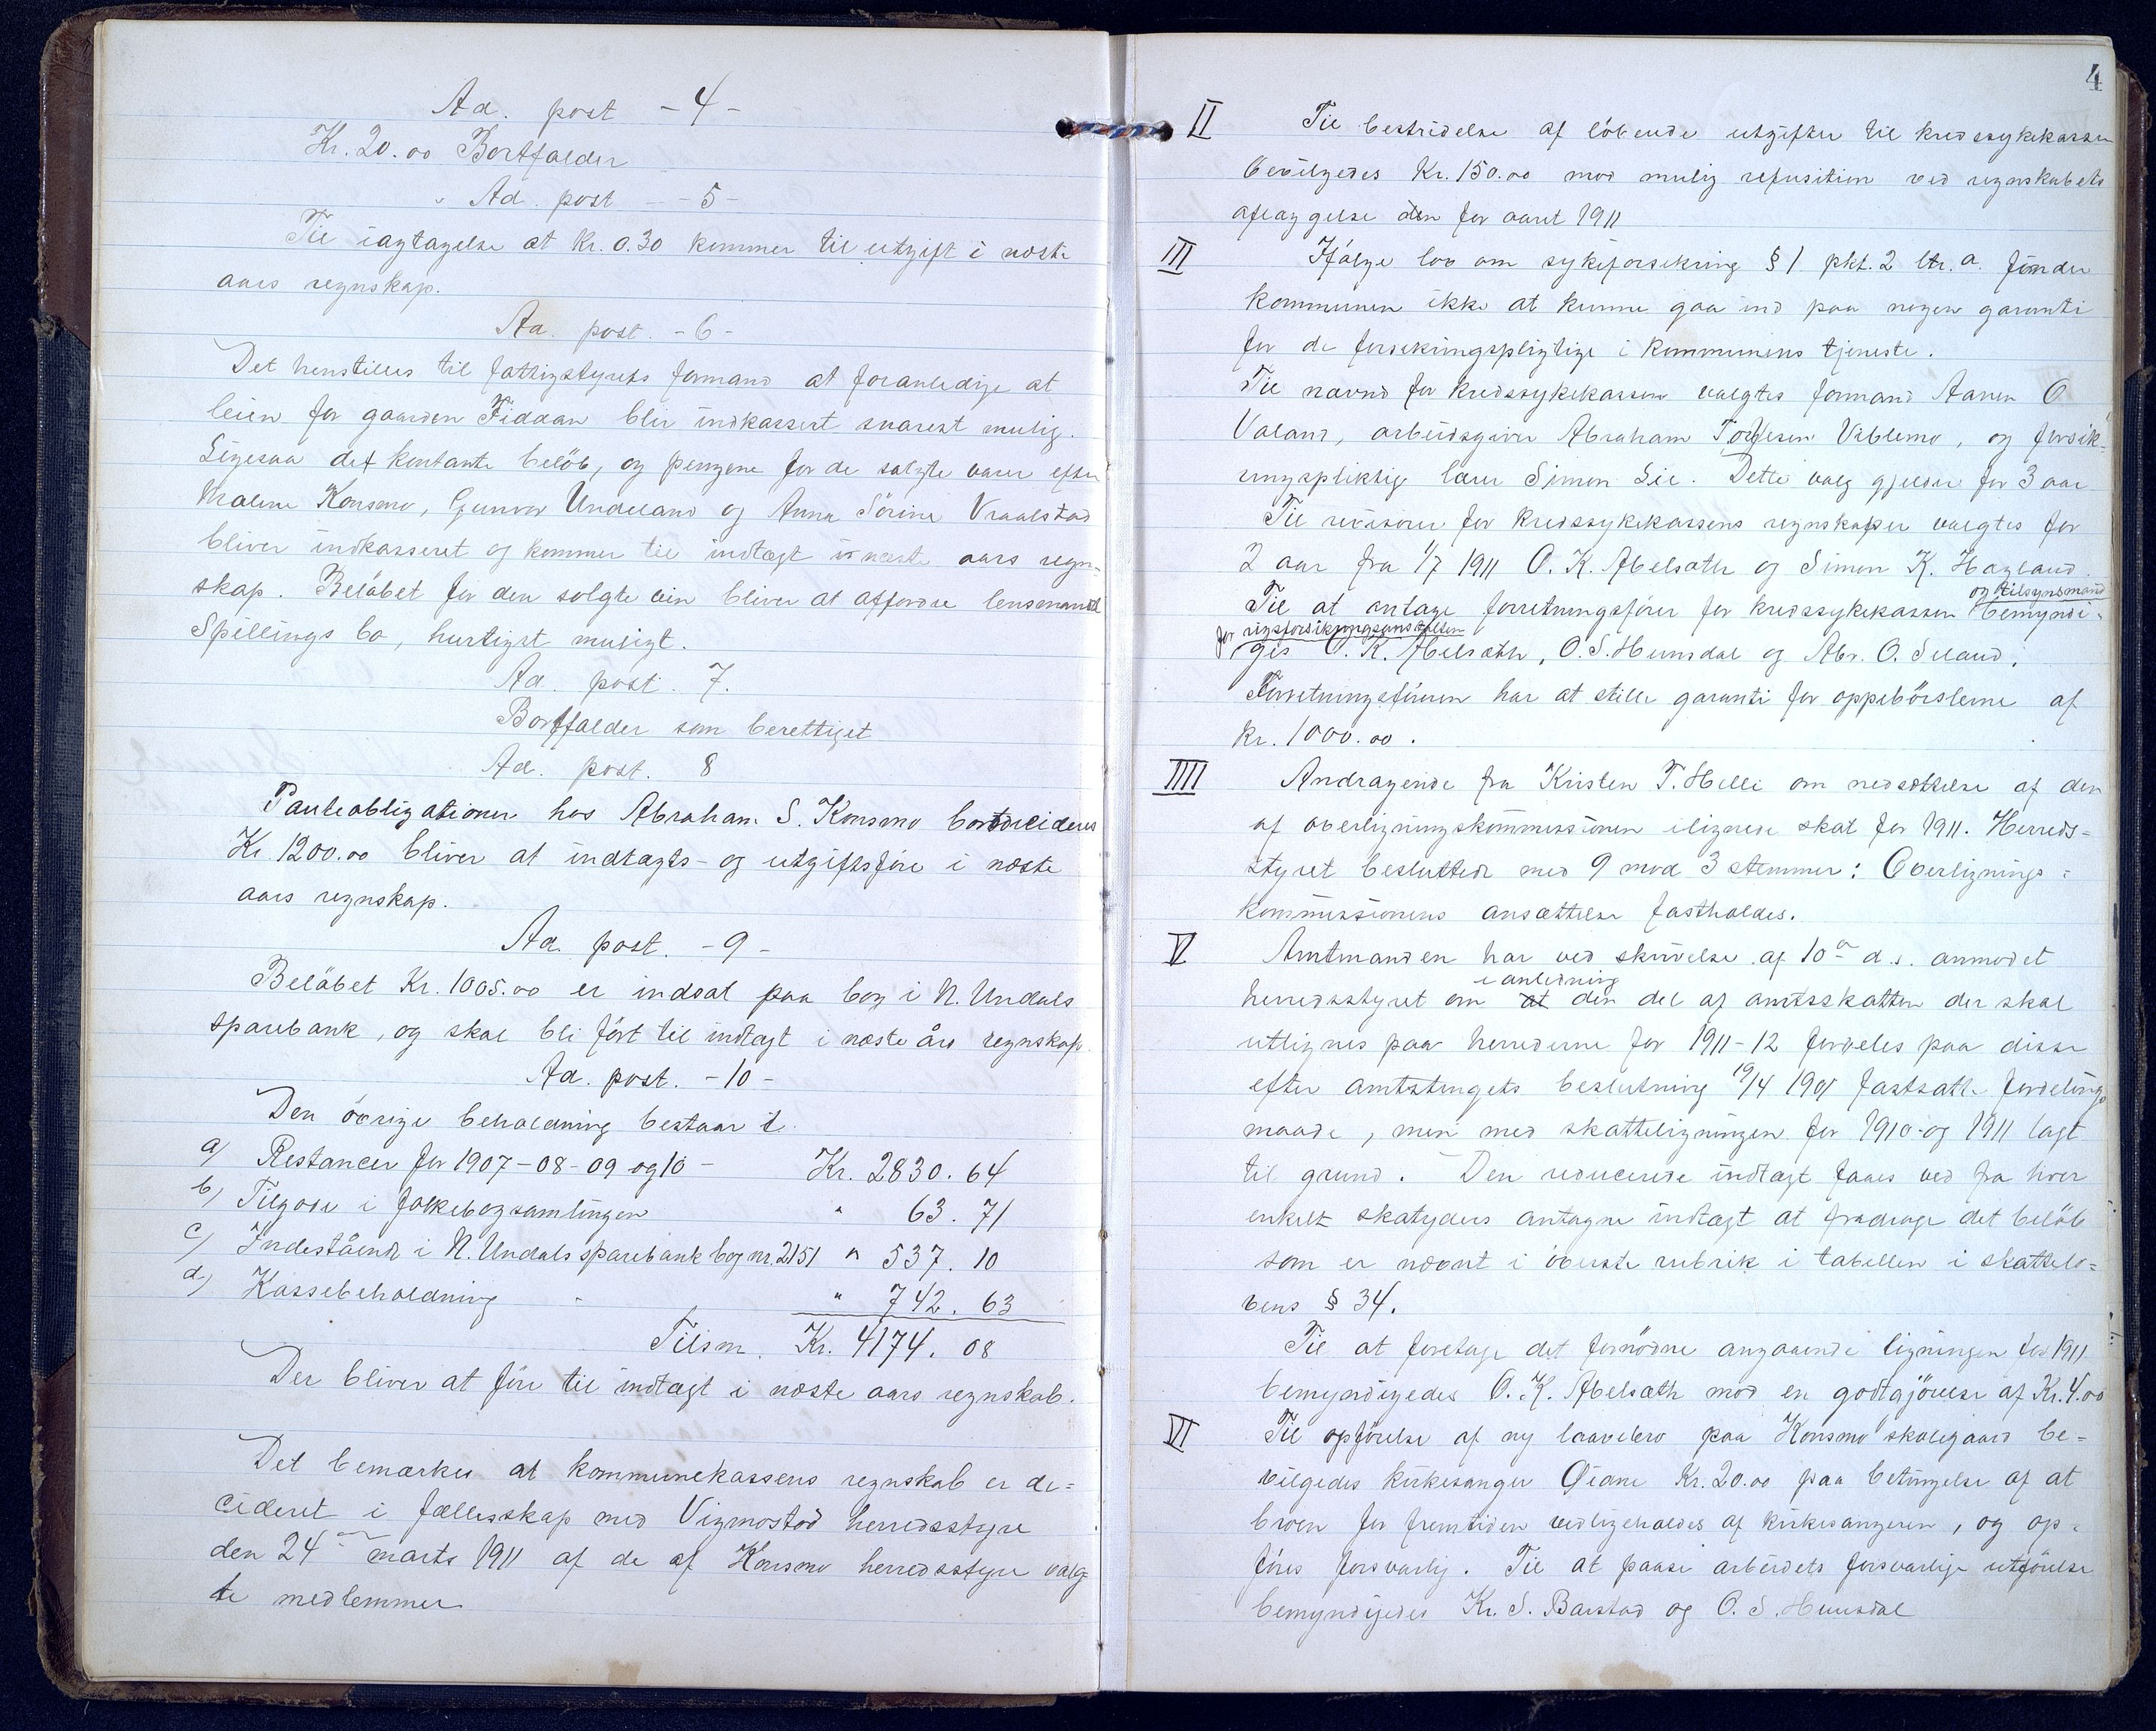 Ad. post - 4 -
Kr. 20.00 Bortfalder
Ad. post - 5 -
Til iagtagelse at kr. 0.30 kommer til utgift i næste
aars regnskap.
Ad. post. - 6 -
Det henstilles til fattigstyrets formand at foranledige at
leien for gaarden Fiddan blir indkassert snarest mulig.
Ligesaa det kontante beløb, og pengene for de solgte varer efter
Malene Konsmo, Gunvor Undeland og Anna Sørine Vraalstad
bliver indkasseret og kommer til indtægt i næste aars regn-
skap. Beløbet for den solgte vin bliver at affordre lensmand
Spillings bo, hurtigst muligt.
Ad. post. 7.
Bortfalder som berettiget
Ad. post. 8
Panteobligationer hos Abraham S. Konsmo
Kr 1200.00 bliver at indtægts- og utgiftsføre i næste
aars regnskap.
Ad. post. - 9 -
Beløbet Kr. 1005.00 er indsat paa bog i N. Undals
sparebank, og skal bli ført til indtægt i næste års regnskap.
Ad. post. - 10 -
Den øvrige beholdning bestaar i.
a) Restancer for 1907-08-09 og 10 - Kr. 2830. 64
b) Tilgode i folkebogsamlingen " 63. 71
c) Indestående i N. Undals sparebank bog nr. 2151 " 537. 10
d) Kassebeholdning " 742. 63
Tilsm. Kr. 4174. 08
Der bliver at føre til indtægt i næste aars regnskab.
Det bemærkes at kommunekassens regnskab er de=
cideret i fællesskap med Vigmostad herredsstyre
den 24de marts 1911 af de af Konsmo herredsstyre valg-
te medlemmer
4
II Til bestridelse af løbende utgifter til kredssykekassen
bevilgedes Kr. 150.00 mod mulig refusition ved regnskabets
aflæggelse den for aaret 1911
III Ifølge lov om sykeforsikring § 1 pkt. 2 ltr. a. finder
kommunen ikke at kunne gaa ind paa nogen garanti
for de forsikringspligtige i kommunens tjeneste.
Til nævnd for kredssykekassen valgtes formand Aanen O
Valand, arbeidsgiver Abraham Tor­jesen Viblemo, og forsik-
ringspliktig lærer Simon Lie. Dette valg gjelder for 3 aar
Til revisorer for kredssykekassens regnskaper valgtes for
2 aar fra 1/7 1911 O. K. Abelsæth og Simon K. Hægland.
og tilsynsmand
Til at antage forretningsfører for kredssykekassen bemyndi-
for rigsforsikringsanstalten
ges O. K. Abelsæth, O. S. Hunsdal og Abr. O. Seland.
Forretningsføreren har at stille garanti for oppebørslerne af
kr. 1000.00.
IIII Andragende fra Kristen T. Helle om nedsættelse af den
af overligningskommissionen ilignede skat for 1911. Herreds=
styret besluttede med 9 mod 3 stemmer: Overlignings=
kommissionens ansættelse fastholdes.
V Amtmanden har ved skrivelse af 10de d.s. anmodet
i anledning
herredsstyret om at den del af amtsskatten der skal
utlignes paa herrederne for 1911-12 fordeles paa disse
efter amtstingets beslutning 19/4 1901 fastsatte fordelings
maade, men med skatteligningen for 1910 og 1911 lagt
til grund. Den reducerede indtægt faaes ved fra hver
enkelt skatyders antagne indtægt at fradrage det beløb
som er nævnt i øverste rubrik i tabellen i skattelo=
vens § 34.
Til at foretage det fornødne angaaende ligningen for 1911
bemyndigedes O. K. Abelsæth mod en godtgjørelse af Kr. 4.00
VI Til opførelse af ny laavebro paa Konsmo skolegaard be=
vilgedes kirkesanger Øidne Kr. 20.00 paa betingelse af at
broen for fremtiden vedligeholdes af kirkesangeren, og op=
føres forsvarlig. Til at paase arbeidets forsvarlige utførelse
bemyndigedes Kr. S. Barstad og O. S. Hunsdal